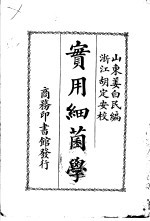 山東姜白民編
浙江胡定安校
實用細菌學
商務印書館發行